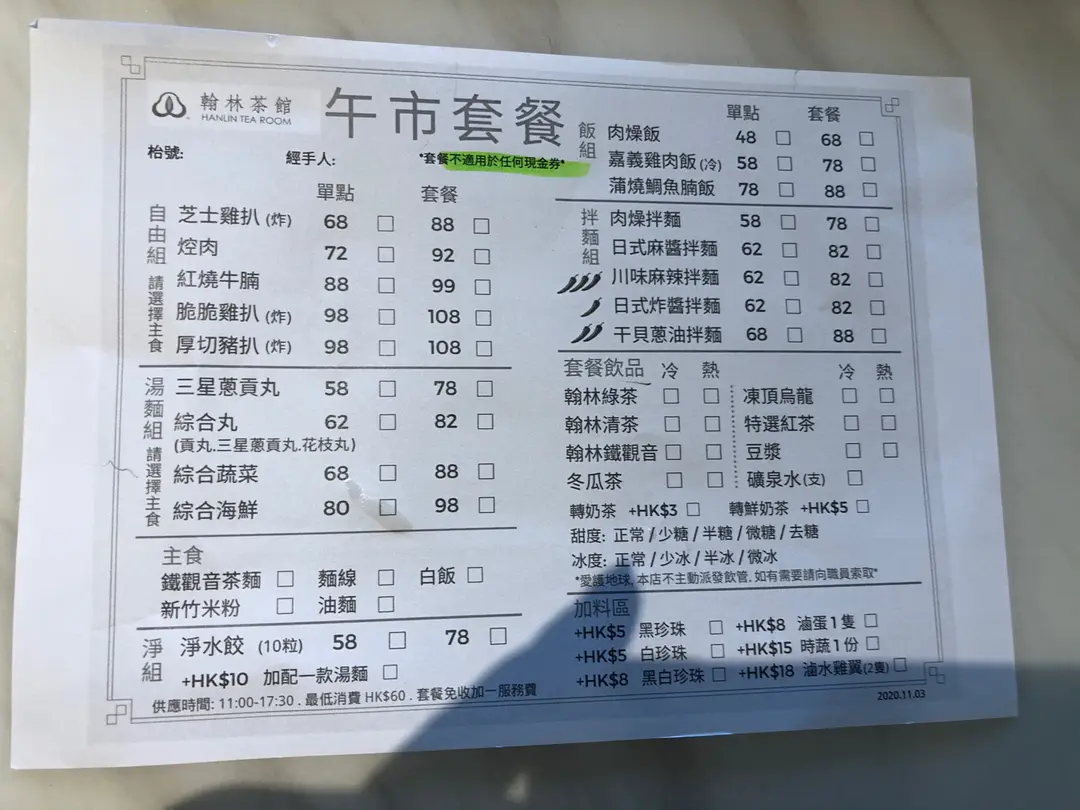 翰林茶館
HANLIN TEA ROOM
午市套餐
枱號:
經手人:
*套餐不適用於任何現金券*
單點 套餐
自由組 請選擇主食
芝士雞扒 (炸) 68 □ 88 □
焢肉 72 □ 92 □
紅燒牛腩 88 □ 99 □
脆脆雞扒 (炸) 98 □ 108 □
厚切豬扒 (炸) 98 □ 108 □
湯麵組 請選擇主食
三星蔥貢丸 58 □ 78 □
綜合丸 62 □ 82 □
(貢丸.三星蔥貢丸.花枝丸)
綜合蔬菜 68 □ 88 □
綜合海鮮 80 □ 98 □
主食
鐵觀音茶麵 □ 麵線 □ 白飯 □
新竹米粉 □ 油麵 □
淨組
淨水餃 (10粒) 58 □ 78 □
+HK$10 加配一款湯麵 □
供應時間: 11:00-17:30 . 最低消費 HK$60 . 套餐免收加一服務費
單點 套餐
飯組
肉燥飯 48 □ 68 □
嘉義雞肉飯 (冷) 58 □ 78 □
蒲燒鯛魚腩飯 78 □ 88 □
拌麵組
肉燥拌麵 58 □ 78 □
日式麻醬拌麵 62 □ 82 □
川味麻辣拌麵 62 □ 82 □
日式炸醬拌麵 62 □ 82 □
干貝蔥油拌麵 68 □ 88 □
套餐飲品 冷 熱 冷 熱
翰林綠茶 □ □ 凍頂烏龍 □ □
翰林清茶 □ □ 特選紅茶 □ □
翰林鐵觀音 □ □ 豆漿 □ □
冬瓜茶 □ □ 礦泉水(支) □
轉奶茶 +HK$3 □ 轉鮮奶茶 +HK$5 □
甜度: 正常 / 少糖 / 半糖 / 微糖 / 去糖
冰度: 正常 / 少冰 / 半冰 / 微冰
*愛護地球, 本店不主動派發飲管, 如有需要請向職員索取*
加料區
+HK$5 黑珍珠 □ +HK$8 滷蛋1隻 □
+HK$5 白珍珠 □ +HK$15 時蔬1份 □
+HK$8 黑白珍珠 □ +HK$18 滷水雞翼(2隻) □
2020.11.03